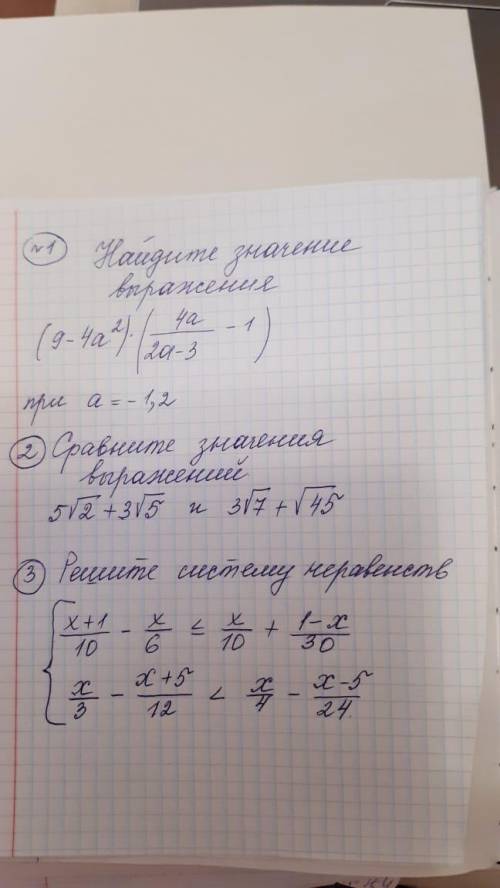 №1 Найдите значение
выражения
(9-4a²)·(4a/(2a-3) - 1)
при a = -1,2
② Сравните значения
выражений
5√2 + 3√5 и 3√7 + √45
③ Решите систему неравенств
{ (x+1)/10 - x/6 ≤ x/10 + (1-x)/30
x/3 - (x+5)/12 < x/4 - (x-5)/24.